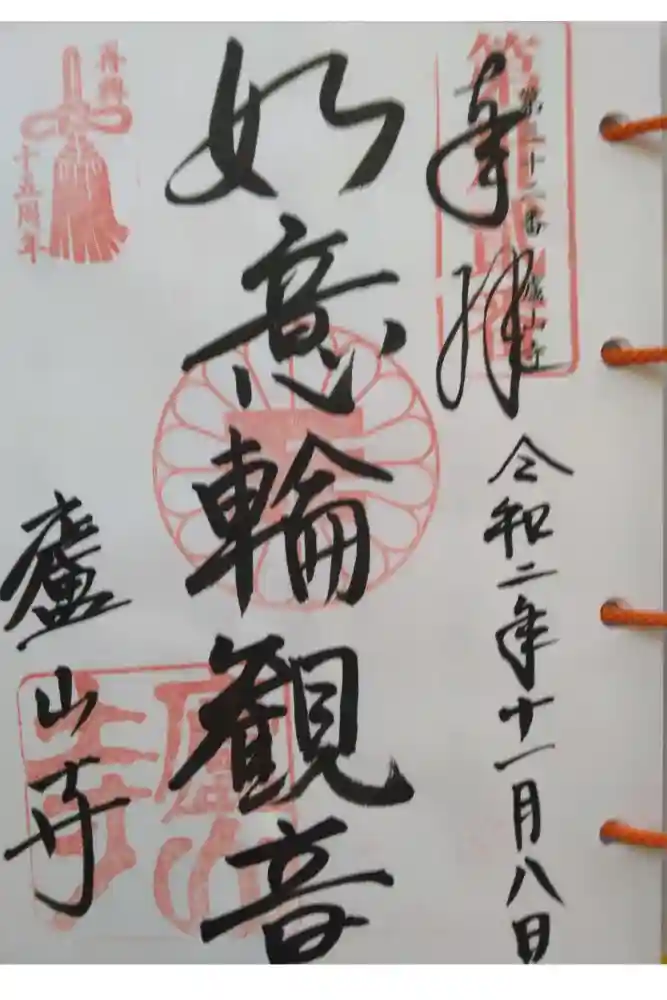 奉拝
第三十二番 廬山寺
令和二年十一月八日
如意輪観音
再興
十五周年
廬山寺
廬山寺